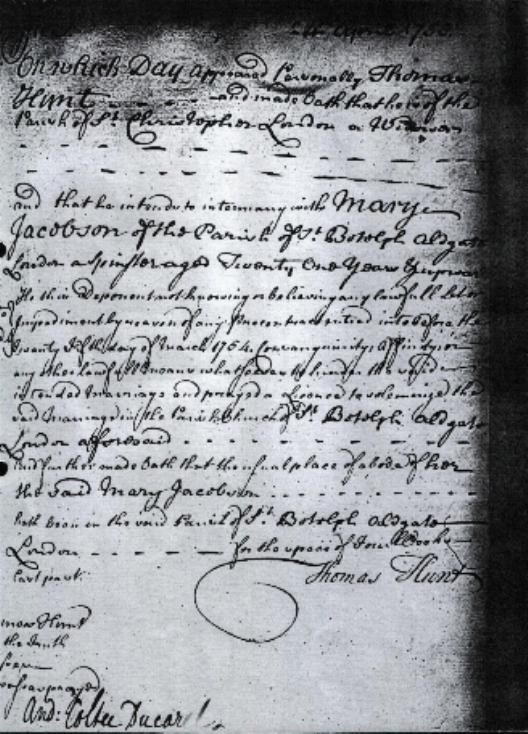 April 175
On which Day appeared Personally Thomas
Hunt - - - - and made Oath that he is of the
Parish of St. Christopher London a Widower
and that he intends to intermarry with Mary
Jacobson of the Parish of St. Botolph Aldgate
London a Spinster aged Twenty One Years & upwards
He this Deponent not knowing or believing any lawfull Let or
Impediment by reason of any Precontract entred into before the
Twenty Fifth day of March 1754. Consanguinity, Affinity or
any other lawfull means whatsoever to hinder the said
intended Marriage and prayed a Licence to solemnize the
said Marriage in the Parish Church of St. Botolph Aldgate
London afforesaid - - - - - - - - -
And further made Oath that the usual place of abode of her
the said Mary Jacobson - - - - - - - - -
hath been in the said Parish of St. Botolph Aldgate
London - - - - - for the space of Four Weeks
last past.
Thomas Hunt
Hunt
the
prayed
And: Coltee Ducarel.